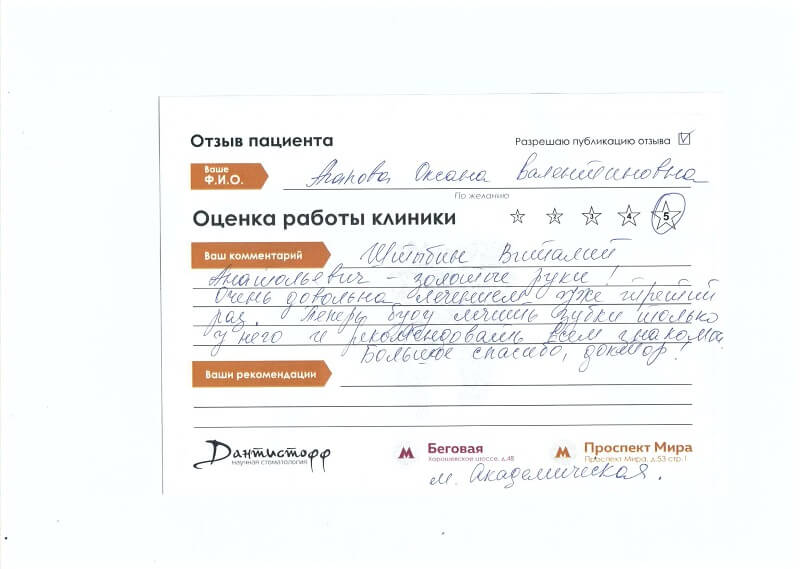 Отзыв пациента
Разрешаю публикацию отзыва
Ваше
Ф.И.О.
Агапова Оксана Валентиновна
По желанию
Оценка работы клиники
4 5
Ваш комментарий
Штыбин Виталий
Анатольевич - золотые руки!
Очень довольна лечением уже третий
раз. Теперь буду лечить зубки только
у него и рекомендовать всем знакомым.
Большое спасибо, доктор!
Ваши рекомендации
Дантистофф
научная стоматология
М Беговая
Хорошевское шоссе, д.48
М Проспект Мира
Проспект Мира, д.53 стр.1
м. Академическая.